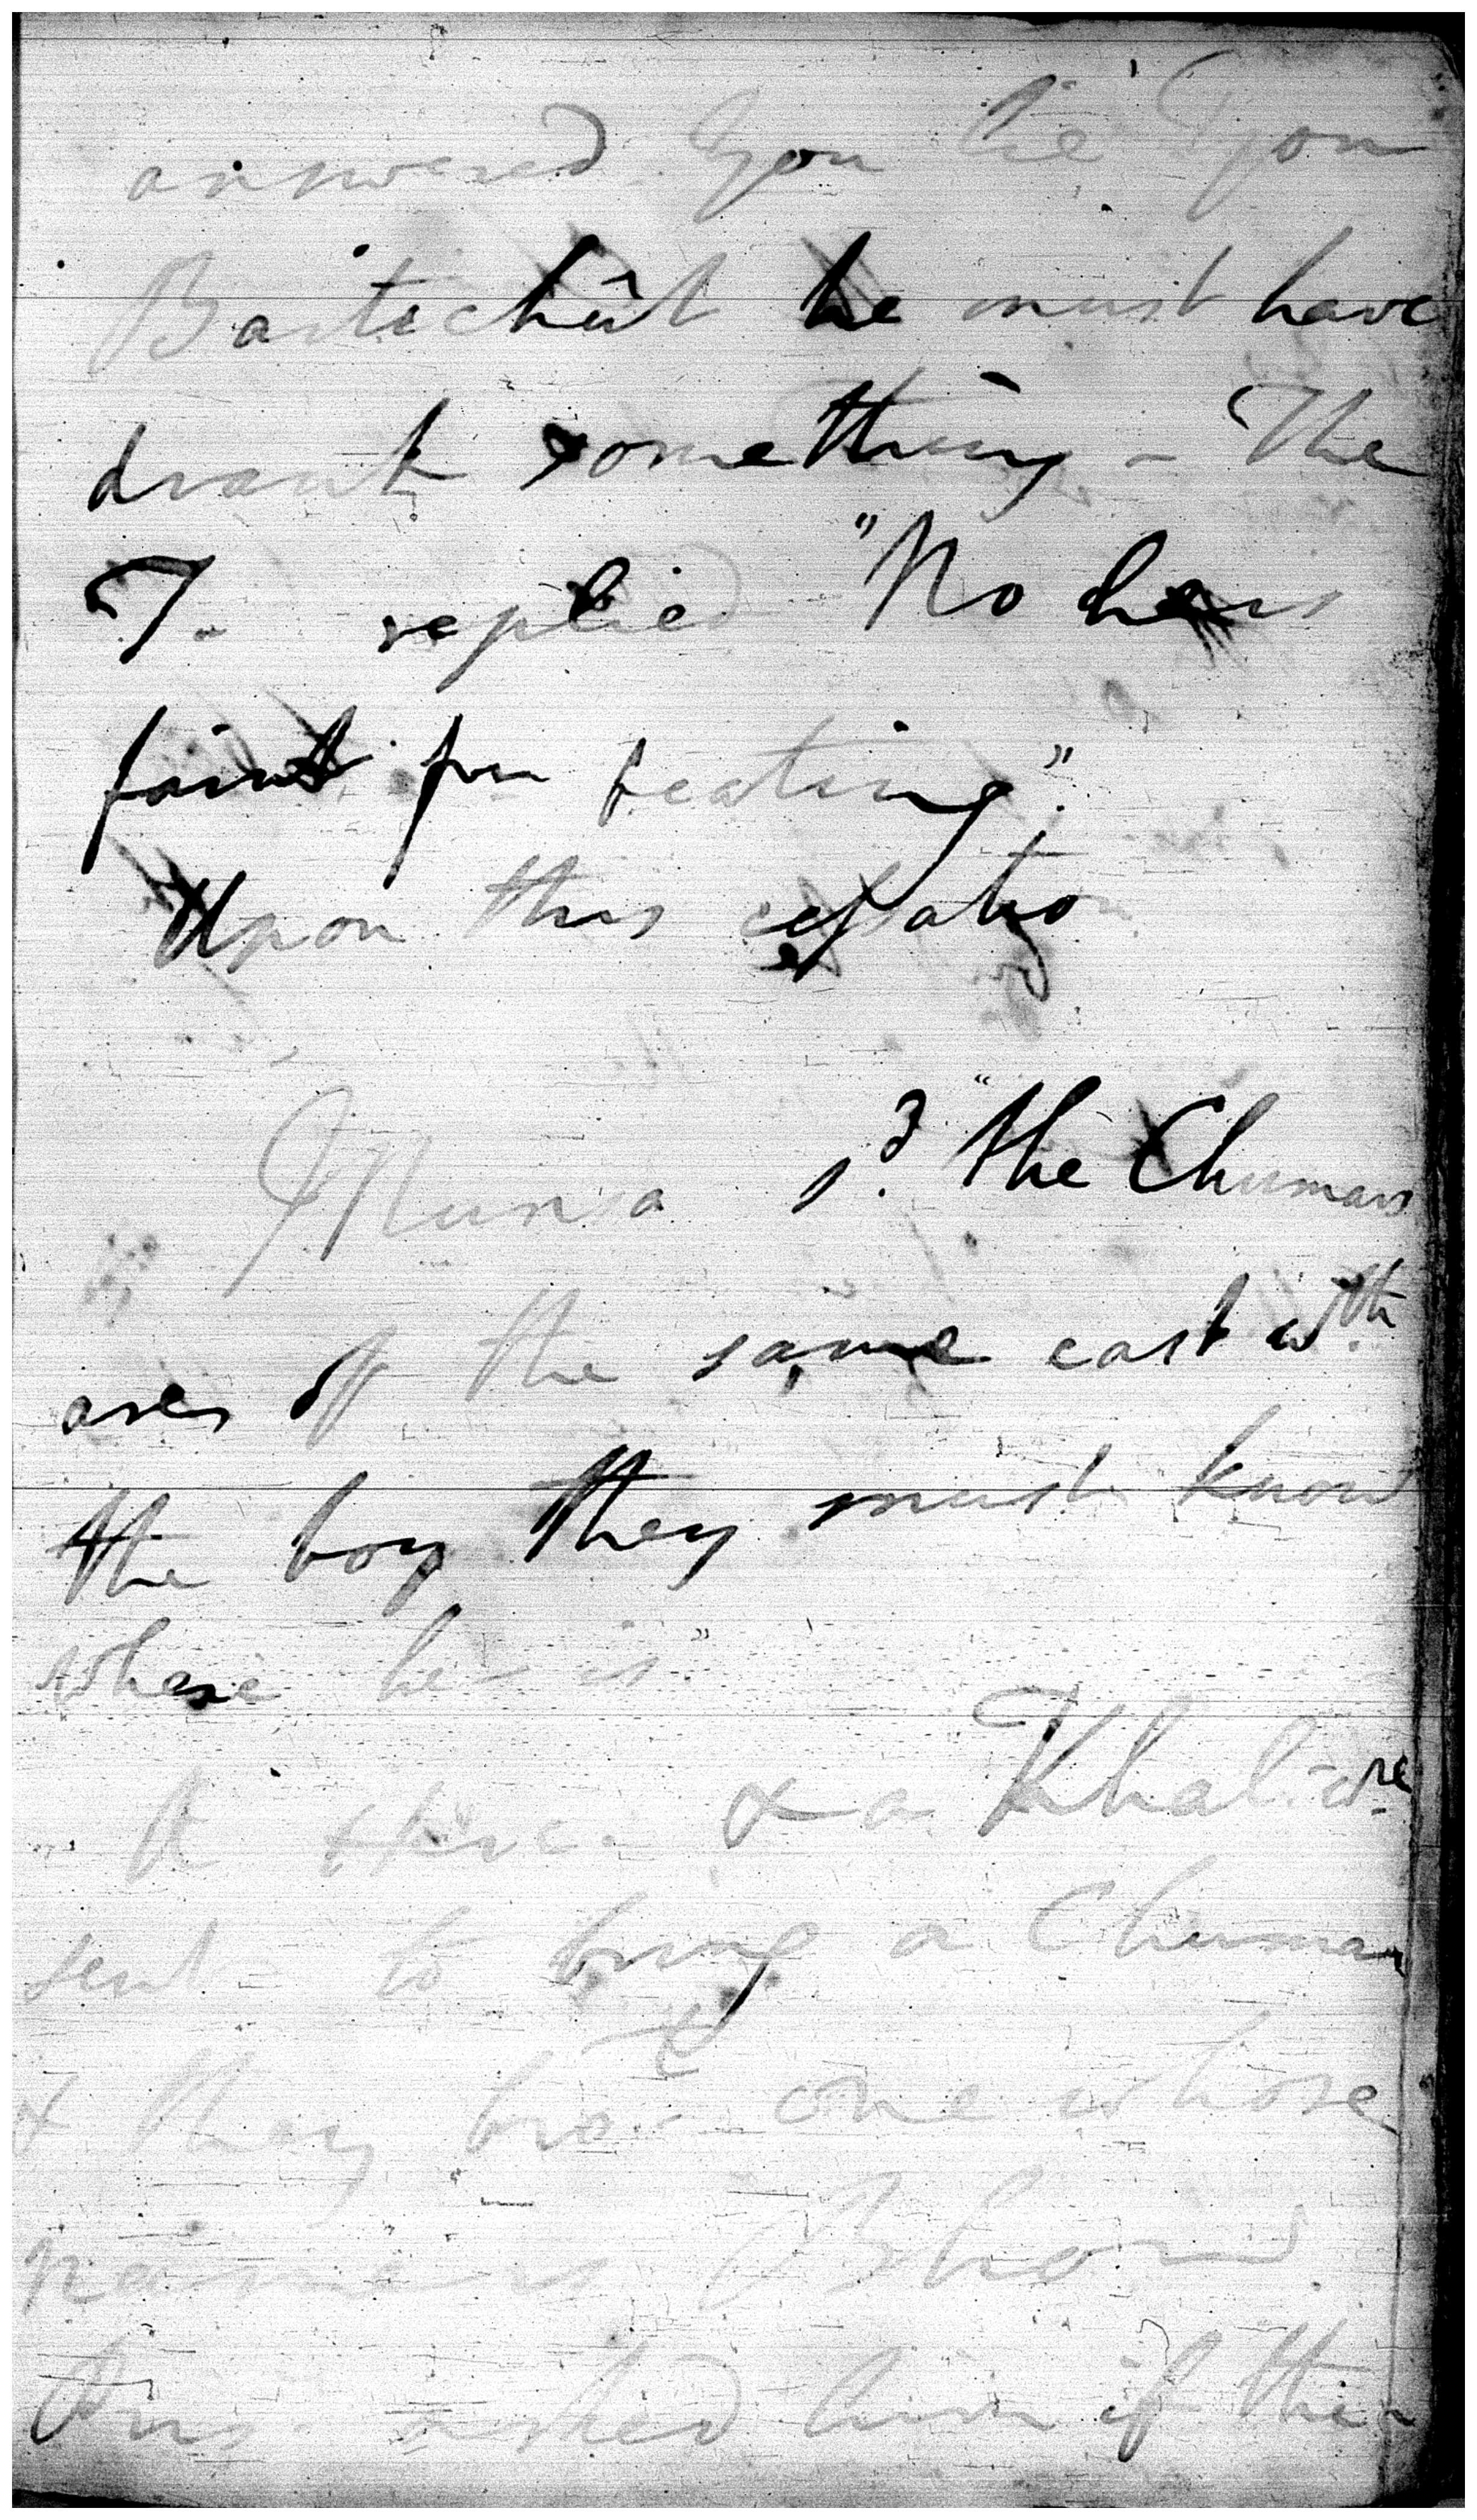 answered you lie you
Bartechût he must have
drank something - The
T. replied "No he is
faint for beating".
Upon this cessation
Munsa sd. "the Chumars
are of the same cast wth
the boy they must know
where he is"
& a Khal: were
sent to bring a Chumar
& they bro. one whose
name is
asked him if the